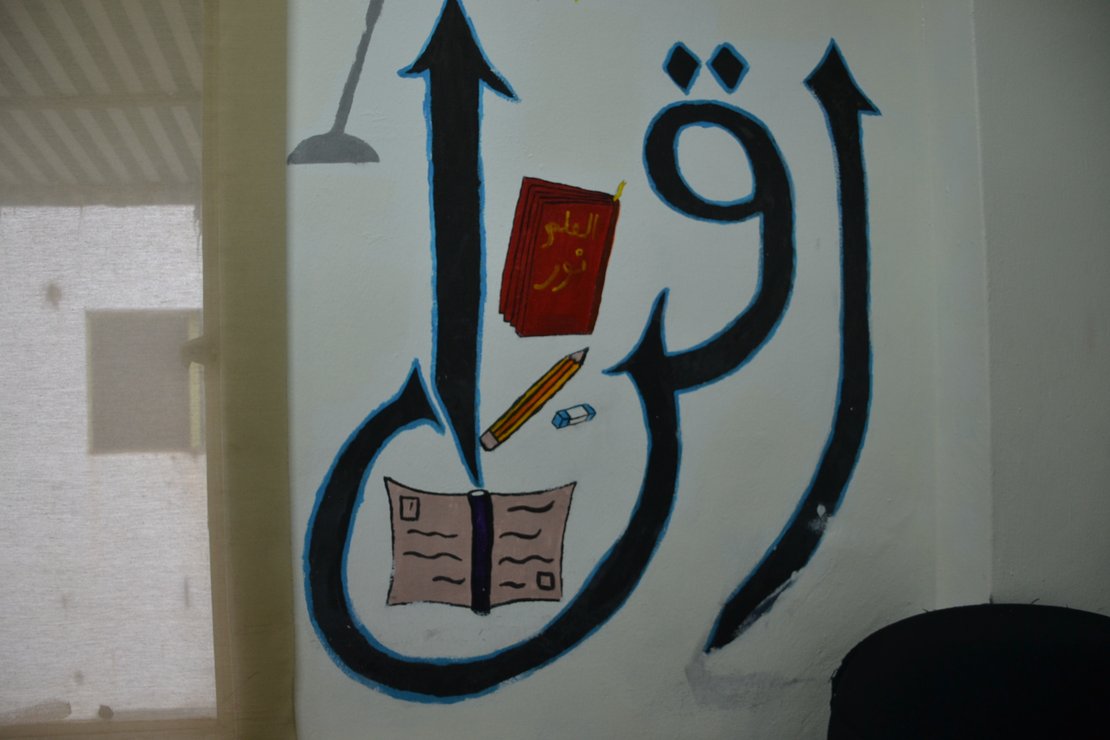 اقرا
العلم
نور